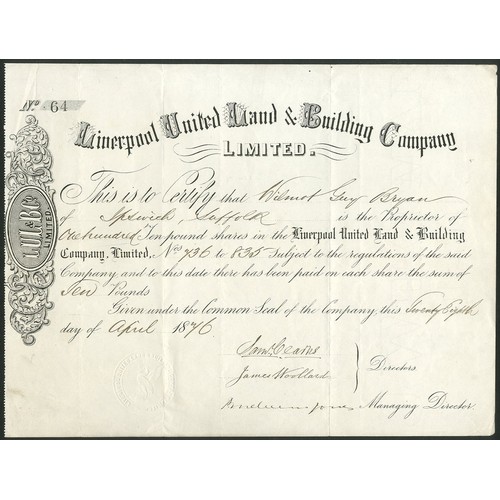 No. 64
Liverpool United Land & Building Company
LIMITED.
This is to Certify that Wilmot Guy Bryan
of Ipswich, Suffolk is the Proprietor of
One hundred Ten pound shares in the Liverpool United Land & Building
Company, Limited, Nos 736 to 835 Subject to the regulations of the said
Company, and to this date there has been paid on each share the sum of
Ten Pounds
Given under the Common Seal of the Company, this Twenty Eighth
day of April 1876
Saml Cearns
James Woollard
Directors
Jones Managing Director
L.U.L.& B.Co.
LIMITED